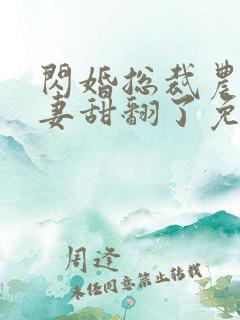 閃婚总裁農
妻甜翻了免
周逢
未任同意禁止转载